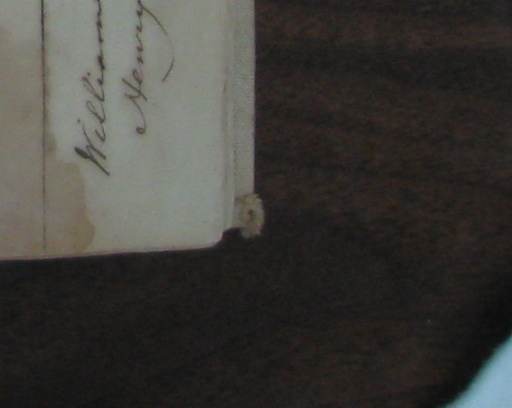 William
Henry